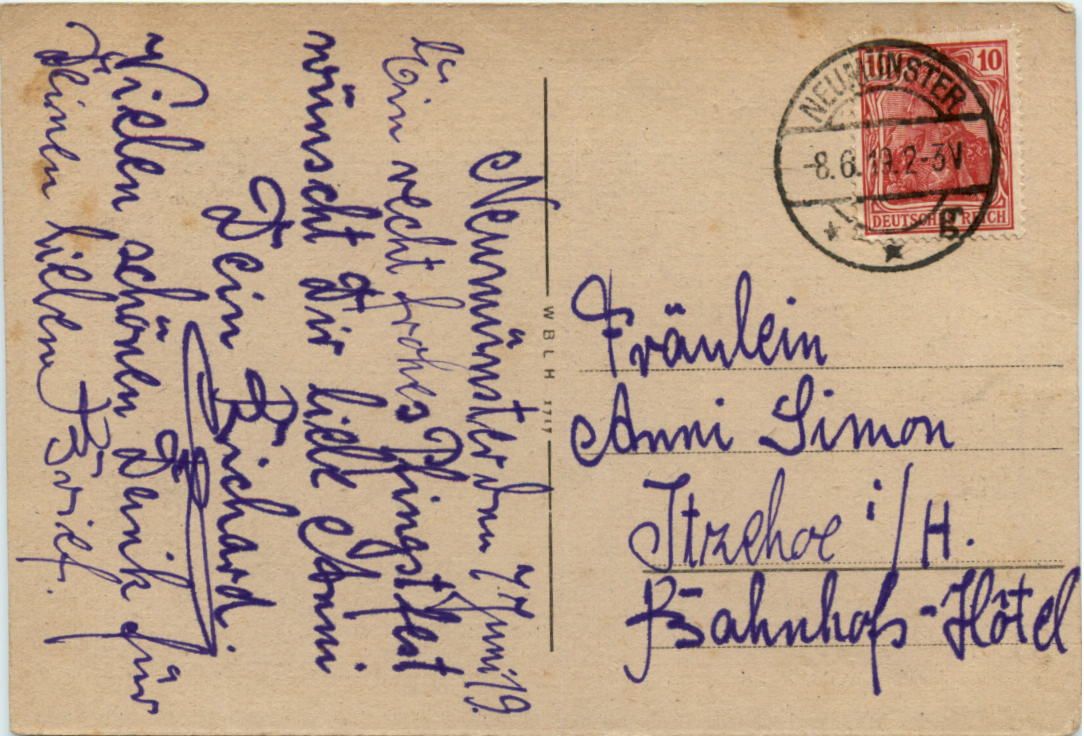 Neumünster den 7 Juni 19.
Ein recht frohes Pfingstfest
wünscht Dir liebe Anni
Dein Richard.
Vielen schönen Dank für
Deinen lieben Brief.
W B L H 1717
10
DEUTSCHES REICH
NEUMÜNSTER
-8.6.19.2-3V
Fräulein
Anni Simon
Itzehoe i/H.
Bahnhofs-Hôtel